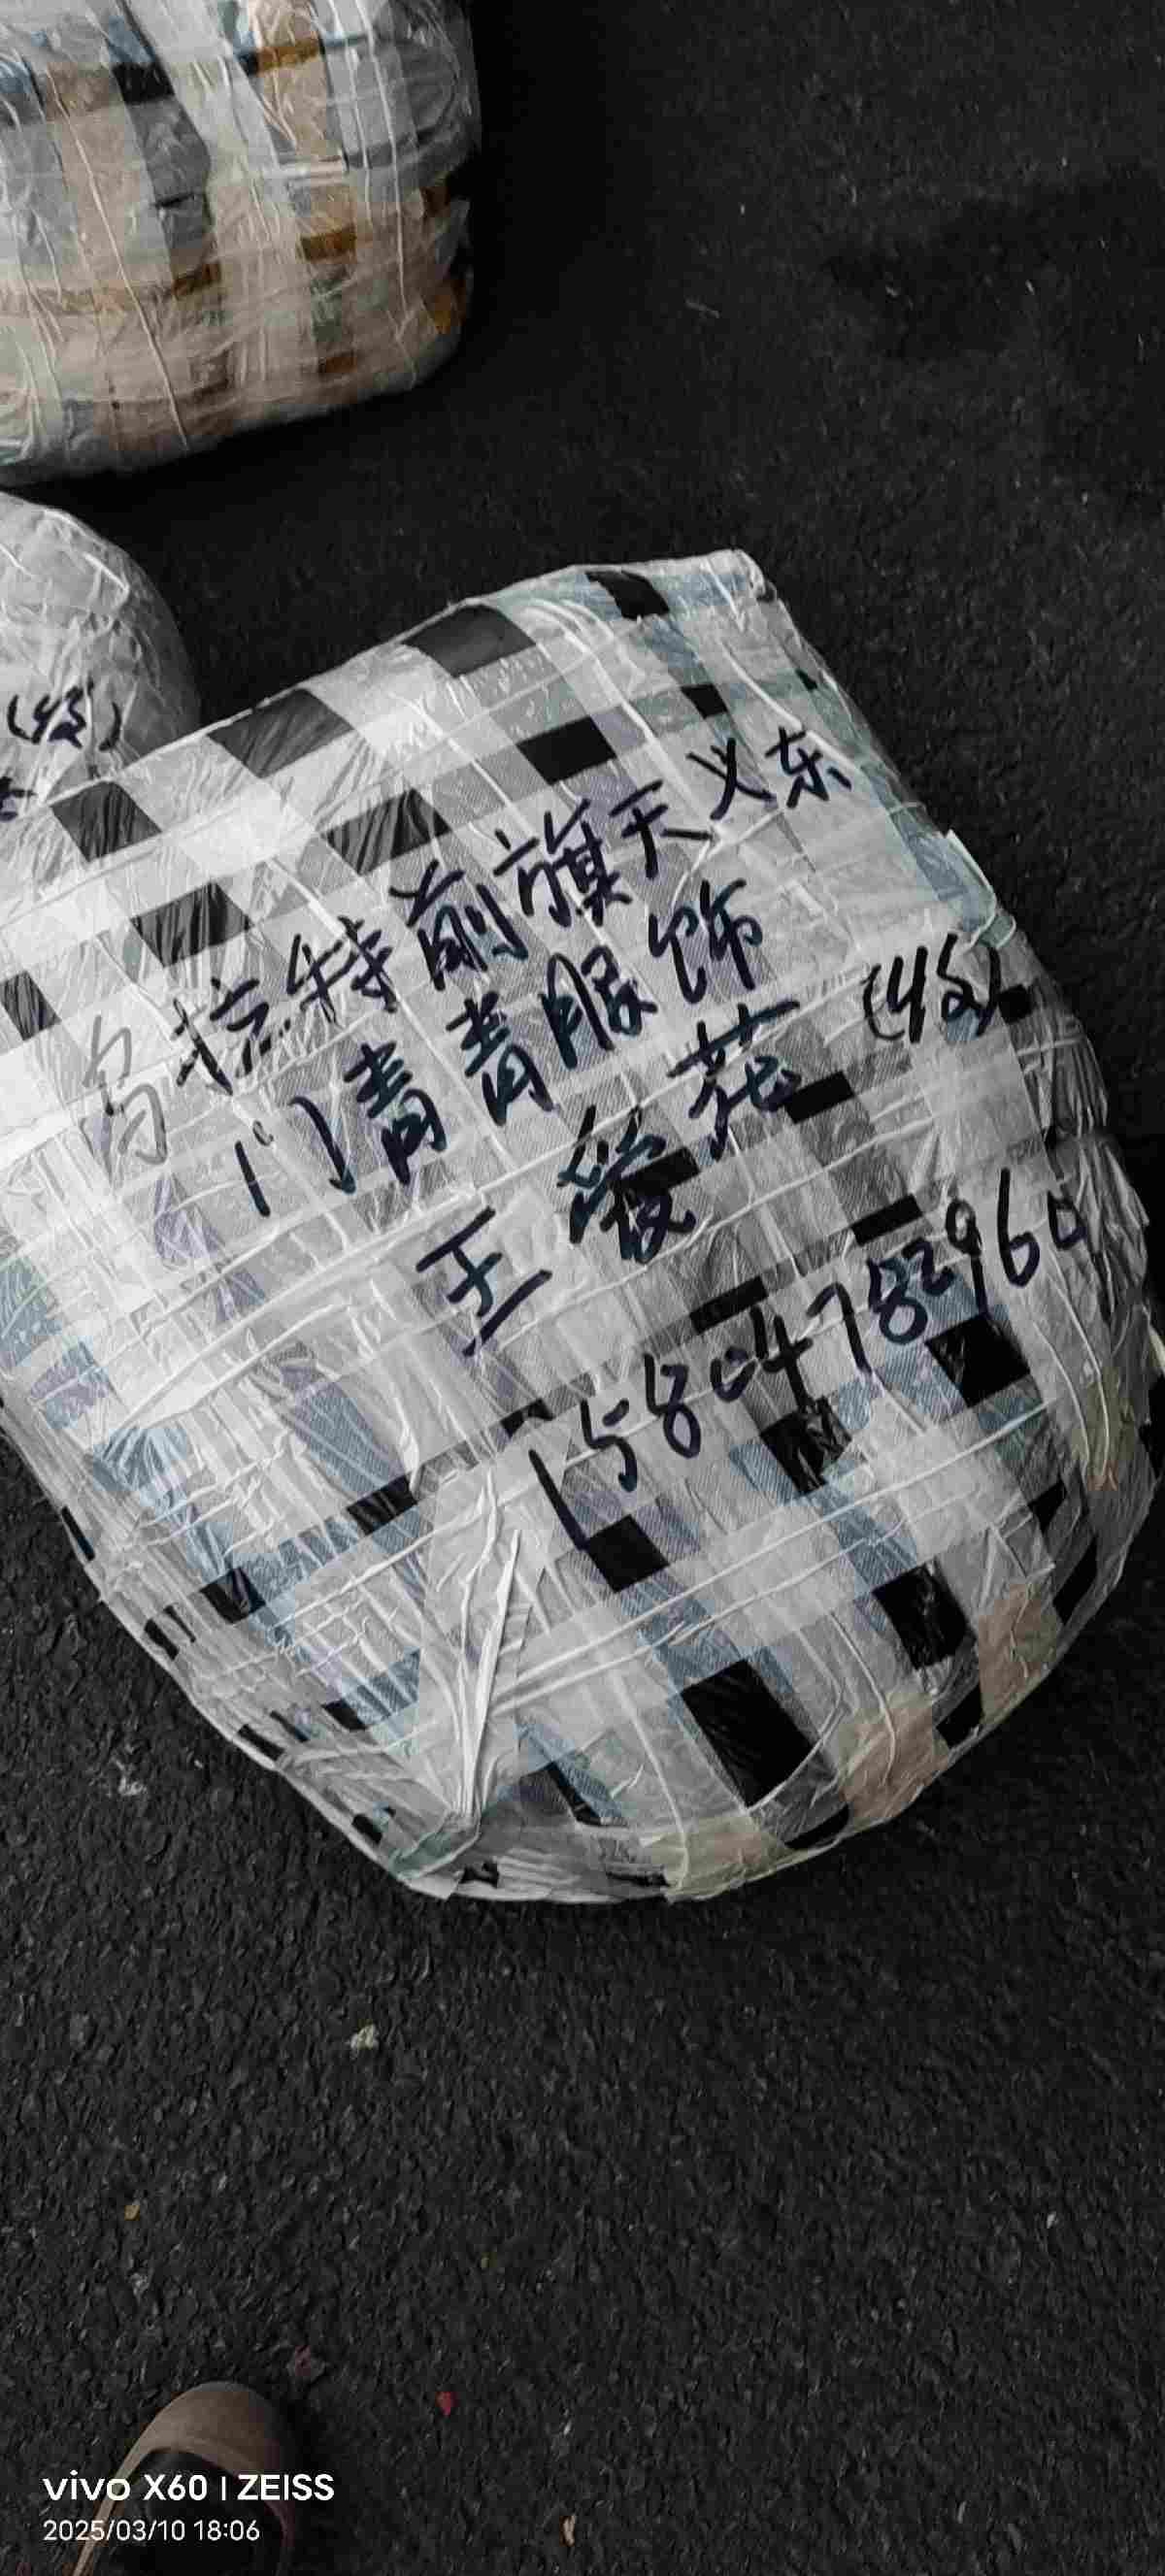 (收)
乌拉特前旗天义东
门青青服饰
王爱花 (收)
15804782960
vivo X60 | ZEISS
2025/03/10 18:06